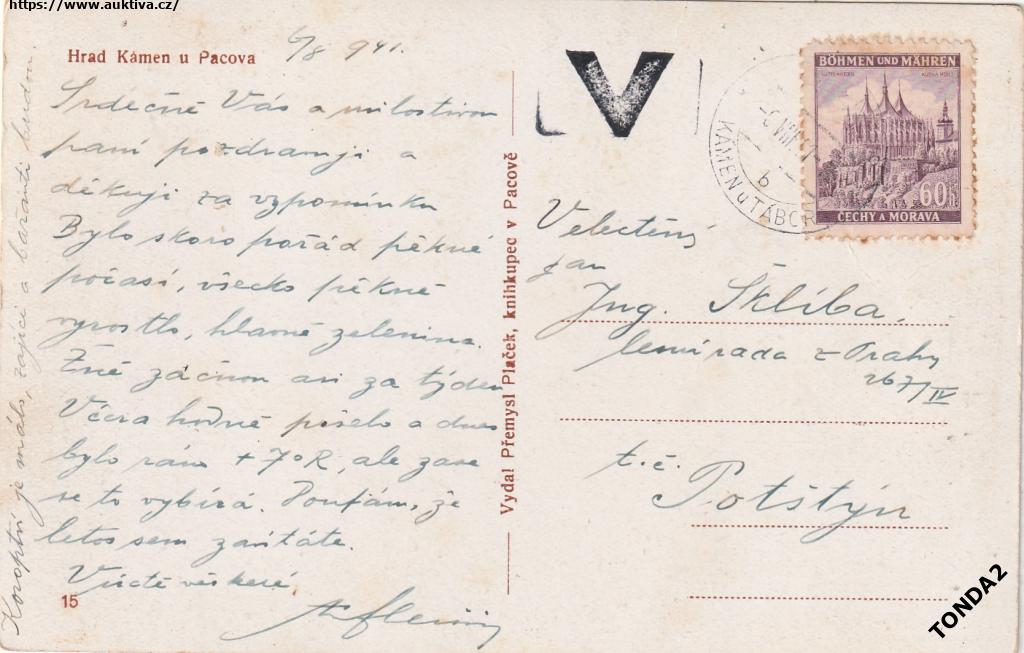 https://www.auktiva.cz/
Hrad Kámen u Pacova
6/8 941.
Srdečně Vás a milostivou
paní pozdravuji a
děkuji za vzpomínku
Bylo skoro pořád pěkné
počasí, všecko pěkně
vyrostlo, hlavně zelenina.
Žně začnou asi za týden
Včera hodně pršelo a dnes
bylo ráno +7°R, ale zase
se to vybírá. Doufám, že
letos sem zavítáte.
Koroptví je málo, zajíci a bažanti budou
15
Vydal Přemysl Plaček, knihkupec v Pacově
V
KÁMEN u TÁBOR
BÖHMEN UND MÄHREN
60h
ČECHY A MORAVA
Velectěný
pan
Jng. Sklíba,
lesní rada z Prahy
267/IV
t.č.
Potštýn
TONDA2